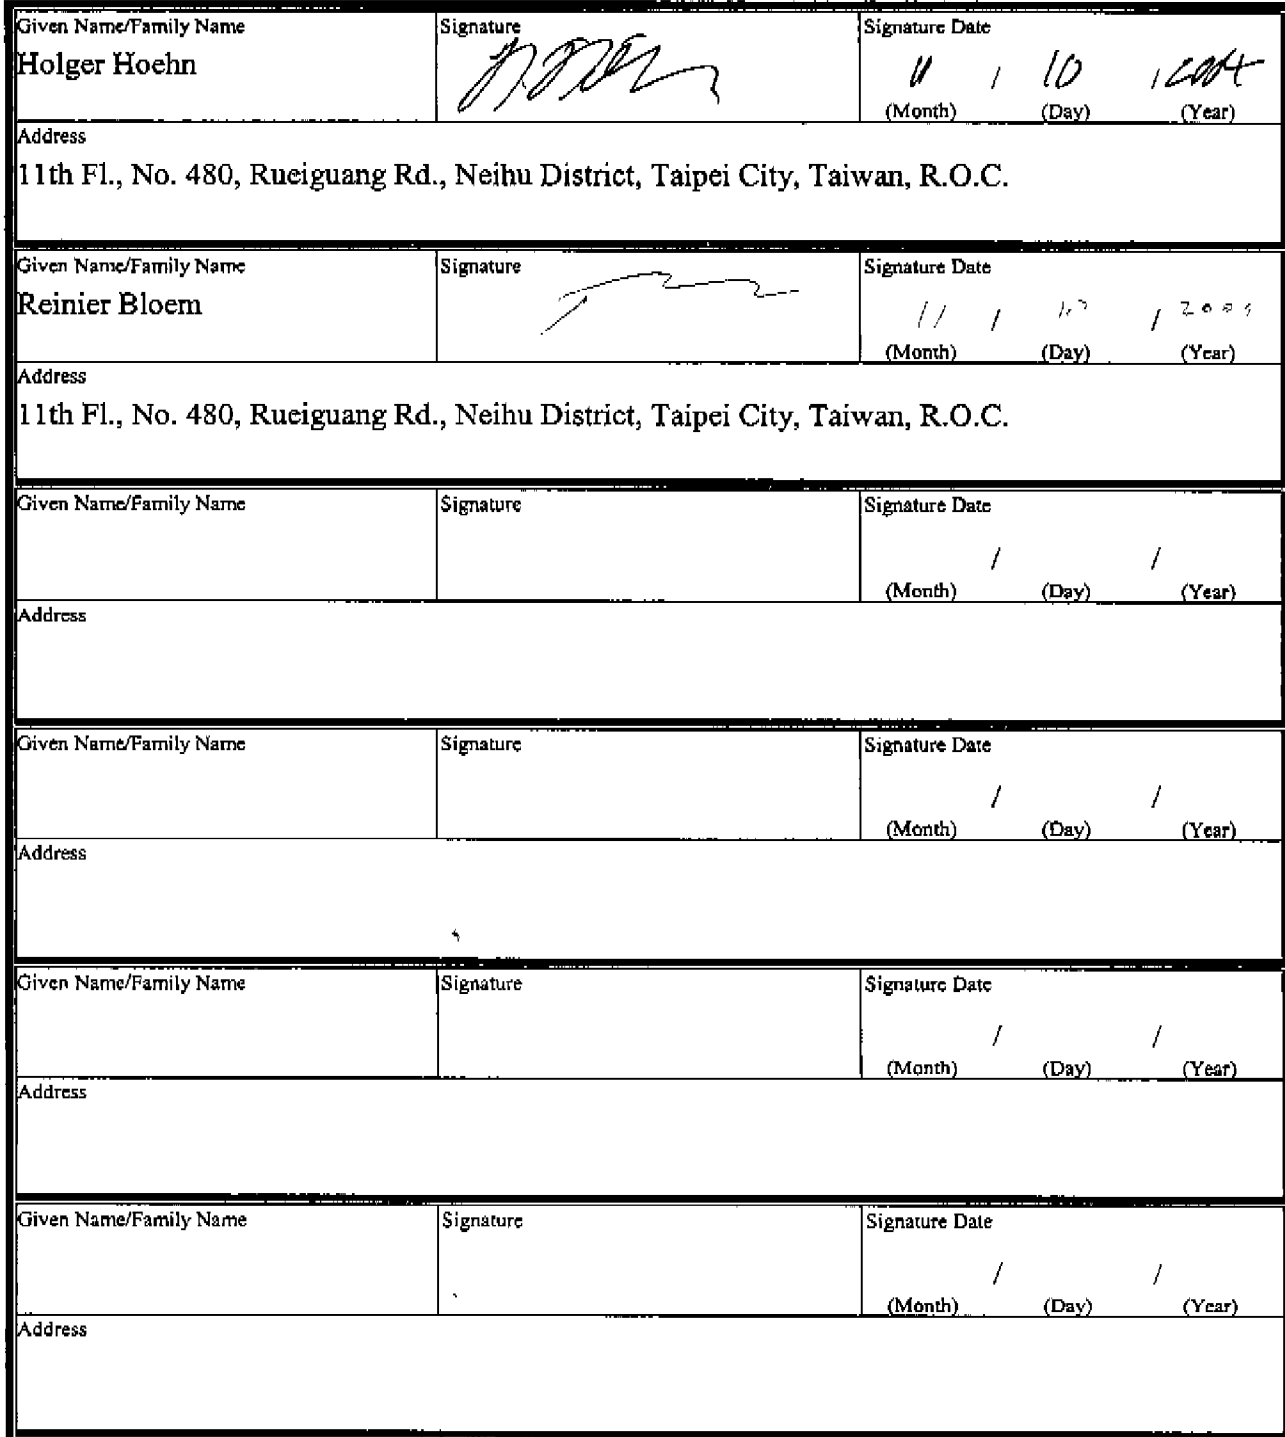 Given Name/Family Name Signature Signature Date
Holger Hoehn
11 / 10 /
(Month) (Day) (Year)
Address
11th Fl., No. 480, Rueiguang Rd., Neihu District, Taipei City, Taiwan, R.O.C.
Given Name/Family Name Signature Signature Date
Reinier Bloem
11 / 10 /
(Month) (Day) (Year)
Address
11th Fl., No. 480, Rueiguang Rd., Neihu District, Taipei City, Taiwan, R.O.C.
Given Name/Family Name Signature Signature Date
/ /
(Month) (Day) (Year)
Address
Given Name/Family Name Signature Signature Date
/ /
(Month) (Day) (Year)
Address
Given Name/Family Name Signature Signature Date
/ /
(Month) (Day) (Year)
Address
Given Name/Family Name Signature Signature Date
/ /
(Month) (Day) (Year)
Address